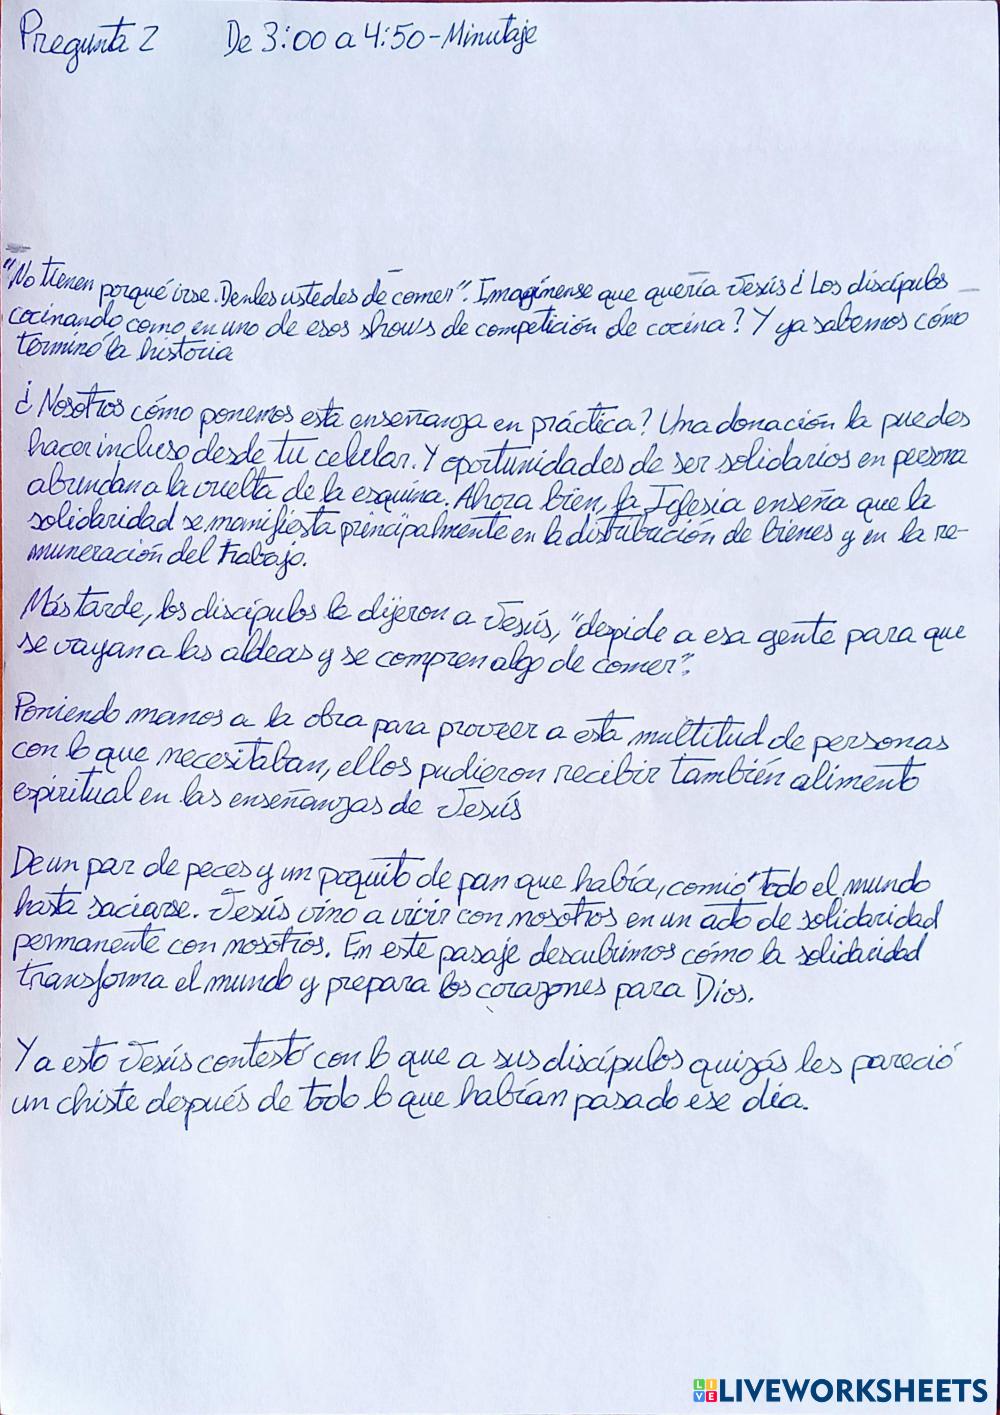 Pregunta 2 De 3:00 a 4:50-Minutaje
"No tienen porqué irse. Denles ustedes de comer". Imagínense que quería Jesús ¿ Los discípulos
cocinando como en uno de esos shows de competición de cocina? Y ya sabemos cómo
terminó la historia
¿ Nosotros cómo ponemos esta enseñanza en práctica? Una donación la puedes
hacer incluso desde tu celular. Y oportunidades de ser solidarios en persona
abundan a la vuelta de la esquina. Ahora bien, la Iglesia enseña que la
solidaridad se manifiesta principalmente en la distribución de bienes y en la re-
muneración del trabajo.
Más tarde, los discípulos le dijeron a Jesús, "despide a esa gente para que
se vayan a las aldeas y se compren algo de comer".
Poniendo manos a la obra para proveer a esta multitud de personas
con lo que necesitaban, ellos pudieron recibir también alimento
espiritual en las enseñanzas de Jesús
De un par de peces y un poquito de pan que había, comió todo el mundo
hasta saciarse. Jesús vino a vivir con nosotros en un acto de solidaridad
permanente con nosotros. En este pasaje descubrimos cómo la solidaridad
transforma el mundo y prepara los corazones para Dios.
Y a esto Jesús contestó con lo que a sus discípulos quizás les pareció
un chiste después de todo lo que habían pasado ese día.
LIVEWORKSHEETS